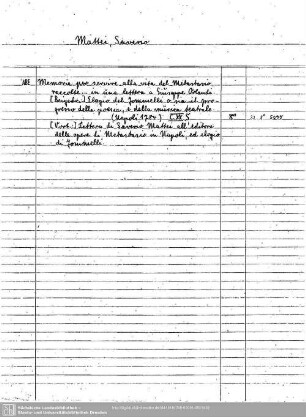 Mattei, Saverio
Memorie per servire alla vita del Metastasio
raccolte... in una lettera a Giuseppe Orlandi
(Beigeb.:) Elogio del Jommelli o sia il pro-
gresso della poesia, e della musica teatrale
(Napoli 1784) 8°
(Vorh.:) Lettera di Saverio Mattei all'editore
delle opere di Metastasio in Napoli, ed elogio
di Jommelli
Sächsische Landesbibliothek -
Staats- und Universitätsbibliothek Dresden